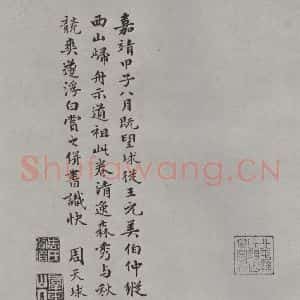 嘉靖甲子八月既望球從王元美伯仲縱
西山歸舟示道祖此卷清逸森秀与秋
競爽遂浮白賞之併書識快
周天球
Shufawang.CN